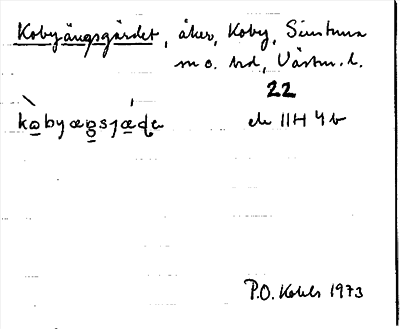 Kobyängsgärdet, åker, Koby, Simtuna
sn o. hd, Västm. l.
22
ek 11H 4b
P.O. 1973